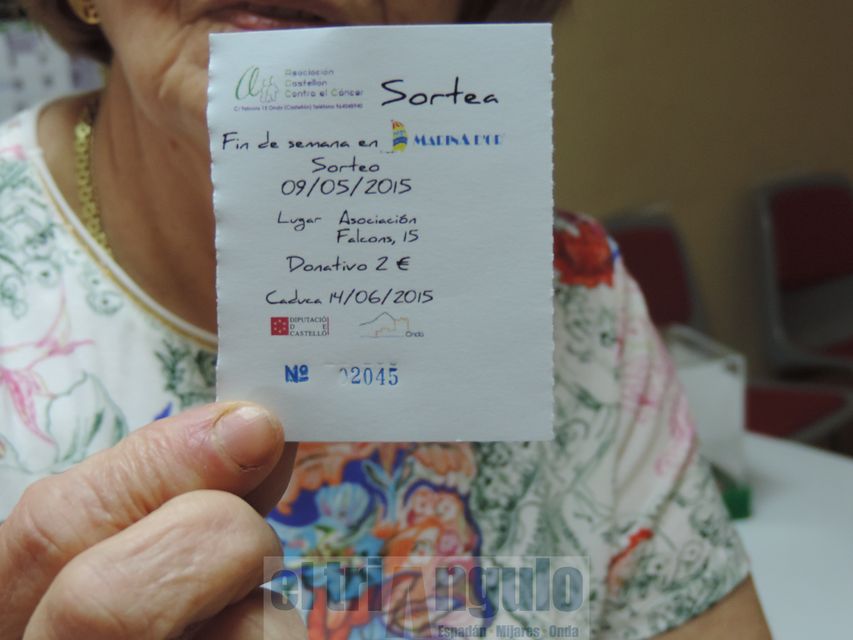 Asociacion
Castellon
Contra el Cáncer
Sortea
C/ Falcons 15 Onda (Castellón) Teléfono 964046940
Fin de semana en MARINA D'OR
Sorteo
09/05/2015
Lugar Asociación
Falcons, 15
Donativo 2 €
Caduca 14/06/2015
DIPUTACIÓ
D E
CASTELLÓ
Onda
Nº 02045
eltriÁngulo
Espadán · Mijares · Onda